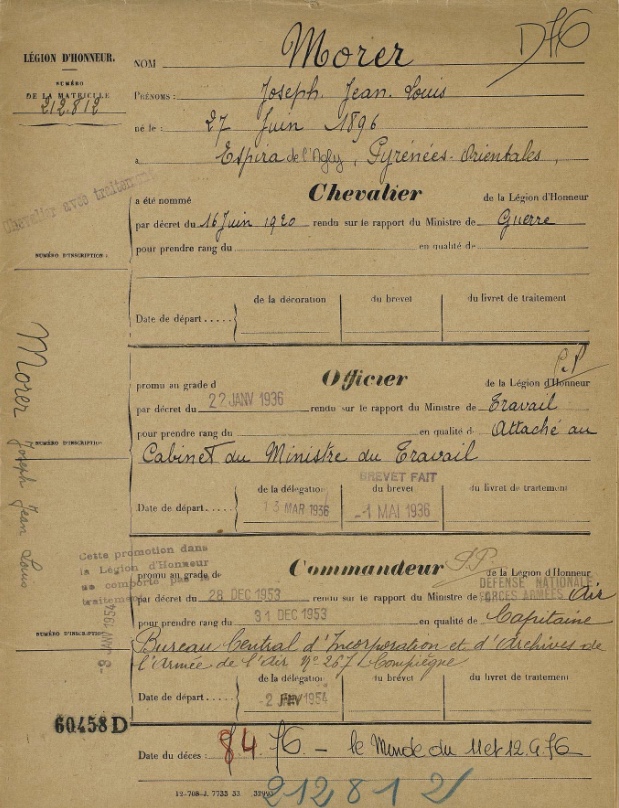 LÉGION D'HONNEUR.
NUMÉRO
DE LA MATRICULE
212.812
NOM Morer
PRÉNOMS : Joseph Jean Louis
né le : 27 Juin 1896
a Espira de l'Agly, Pyrénées-Orientales,
Chevalier avec traitement
a été nommé Chevalier de la Légion d'Honneur
par décret du 16 Juin 1920 rendu sur le rapport du Ministre de Guerre
pour prendre rang du en qualité de
NUMÉRO D'INSCRIPTION :
de la décoration du brevet du livret de traitement
Date de départ.....
Morer Joseph Jean Louis
P.P
promu au grade d Officier de la Légion d'Honneur
par décret du 22 JANV 1936 rendu sur le rapport du Ministre de Travail
pour prendre rang du en qualité de Attaché au
Cabinet du Ministre du Travail
NUMÉRO D'INSCRIPTION
BREVET FAIT
de la délégation du brevet du livret de traitement
Date de départ..... 13 MAR 1936 -1 MAI 1936
Cette promotion dans
la Légion d'Honneur
ne comporte pas de
traitement
8- JANV 1954
promu au grade de Commandeur de la Légion d'Honneur
DEFENSE NATIONALE
FORCES ARMÉES Air
par décret du 28 DEC 1953 rendu sur le rapport du Ministre de
pour prendre rang du 31 DEC 1953 en qualité de Capitaine
Bureau Central d'Incorporation et d'Archives de
l'Armée de l'Air N° 267 Compiègne
NUMÉRO D'INSCRIPTION
de la délégation du brevet du livret de traitement
Date de départ..... -2 FEV 1954
60458 D
Date du décès : 8 4. 76. - le Monde du 11 et 12.4.76
212812